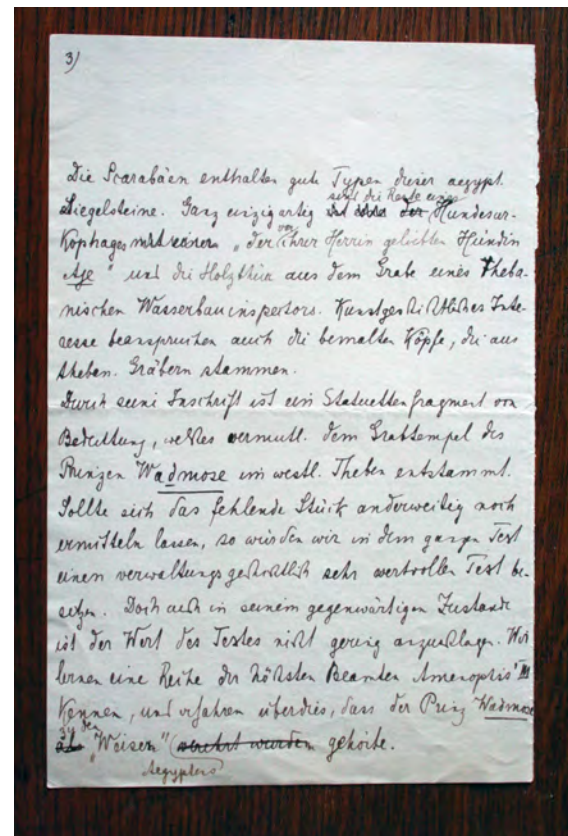 3)
Die Scarabäen enthalten gute Typen dieser aegypt.
sind die Reste eines
Siegelsteine. Ganz einzigartig ist der Hundesar-
kophages mit einer „der von ihrer Herrin geliebten Hündin
Aje“ und die Holzthür aus dem Grabe eines Theba-
nischen Wasserbauinspektors. Kunstgeschichtliches Inte-
resse beanspruchen auch die bemalten Köpfe, die aus
theban. Gräbern stammen.
Durch seine Inschrift ist ein Statuettenfragment von
Bedeutung, welches vermutl. dem Grabtempel des
Prinzen Wadmose im westl. Theben entstammt.
Sollte sich das fehlende Stück anderweitig noch
ermitteln lassen, so würden wir in dem ganzen Text
einen verwaltungsgeschichtlich sehr wertvollen Text be-
sitzen. Doch auch in seinem gegenwärtigen Zustande
ist der Wert des Textes nicht gering anzuschlagen. Wir
lernen eine Reihe der höchsten Beamten Amenophis' III
kennen, und erfahren überdies, dass der Prinz Wadmose
zu den
als „Weisen“ verehrt wurden gehörte.
Aegyptens